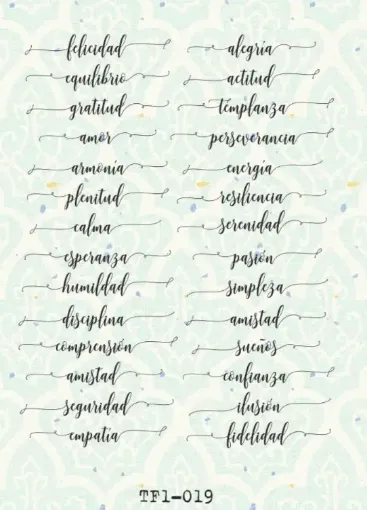 felicidad
equilibrio
gratitud
amor
armonía
plenitud
calma
esperanza
humildad
disciplina
comprensión
amistad
seguridad
empatía
alegría
actitud
templanza
perseverancia
energía
resiliencia
serenidad
pasión
simpleza
amistad
sueños
confianza
ilusión
fidelidad
TF1-019